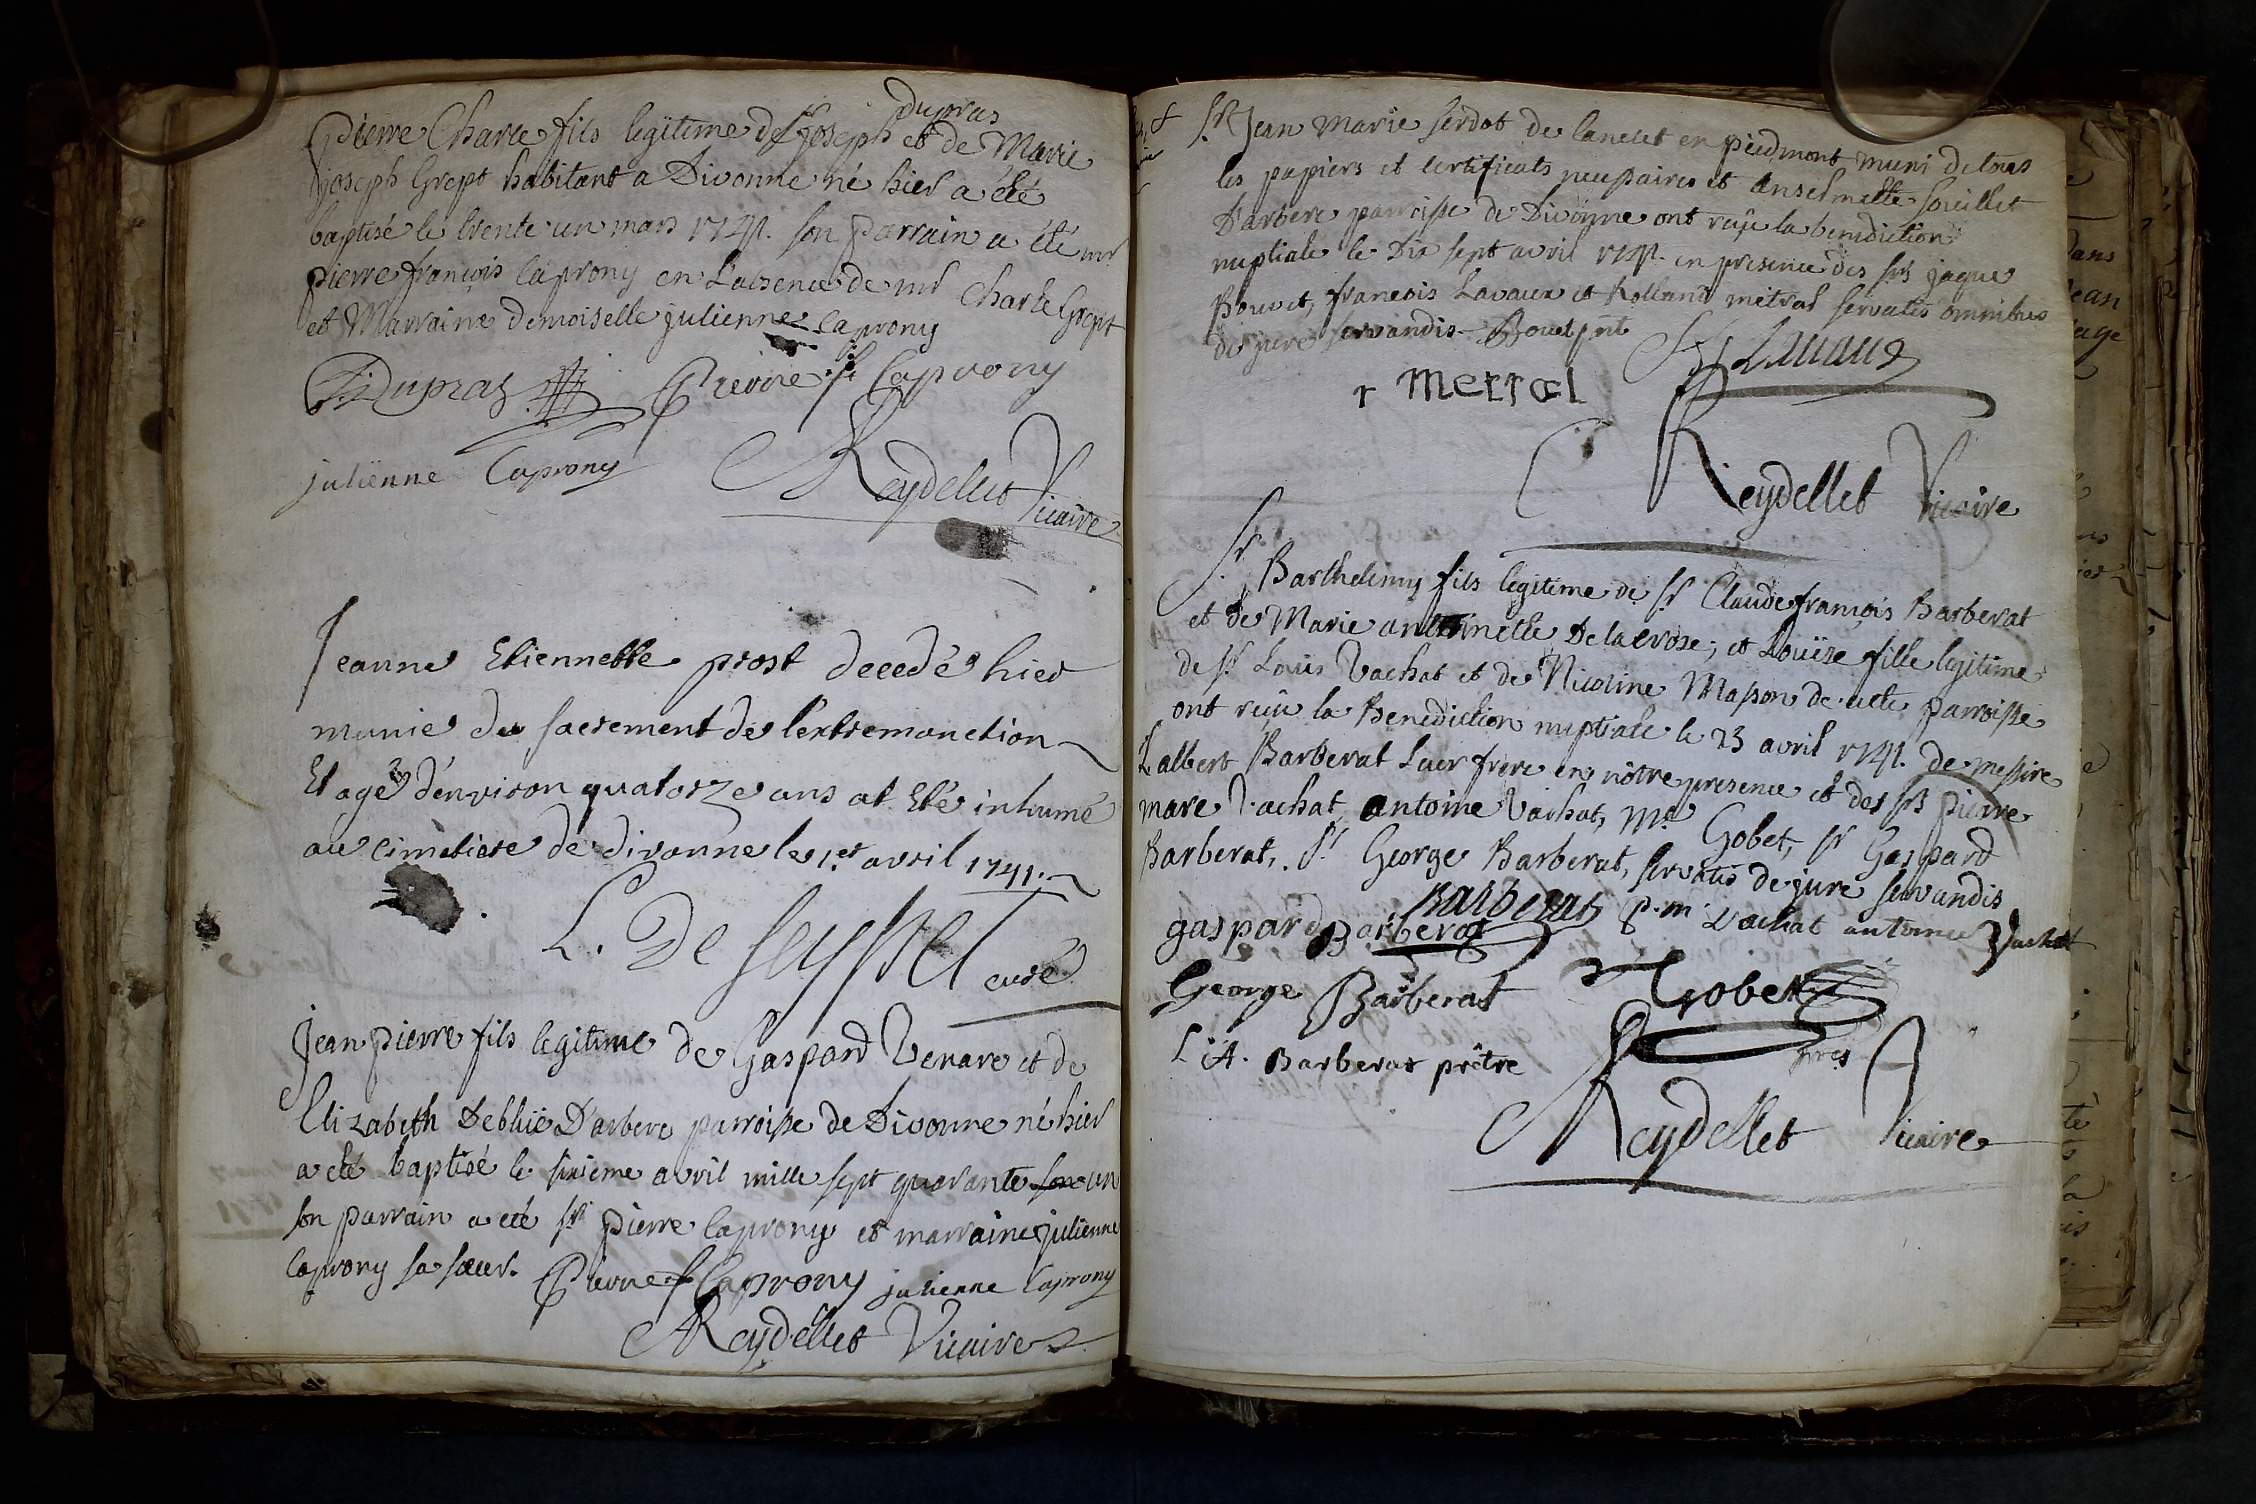 dupras
pierre Charle fils legitime de sr joseph et de Marie
joseph Grept habitant a Divonne né hier a été
baptisé le trente un mars 1741. son parrain a été mr
pierre françois Caprony en L'absence de mr Charle Grept
et Marraine demoiselle julienne Caprony
Dupraz Pierre f Caprony
juliënne Caprony Reydellet Vicaire
Jeanne Etiennette prost decedé hier
munie du sacrement de l'extremonction
Et agé d'environ quatorze ans at Eté inhumé
au cimetiere de divonne le 1.er avril 1741.
L. De seyssel curé
Jean pierre fils legitime de Gaspard Venare et de
Elizabeth Debluë D'arbere parroisse de Divonne né hier
a eté baptisé le sixieme avril mille sept quarante son un
son parrain a eté sr pierre Caprony et marraine julienne
Caprony sa sœur. Pierre f Caprony julienne Caprony
Reydellet Vicaire
Sr Jean Marie serdot de en piedmont muni de tous
les papiers et certificats necessaires et Anselmette souillet
D'arbere parroisse de Divonne ont reçu la benediction
nuptiale le Dix sept avril 1741. en presence des srs jaque
Bouvet, francois Lavaux et Rolland métral servatis omnibus
de jure servandis Bouet pnt Lauaux
r merral
Reydellet Vicaire
Sr Barthelemy fils legitime de sr Claude françois Barberat
et de Marie antoinette De lacrose; et Loüise fille legitime
de sr Loüis Vachat et de Nicoline Masson de cette parroisse
ont reçu la Benediction nuptiale le 23 avril 1741. de messire
L albert Barberat Leur frere en nôtre presence et des srs pierre
marc Vachat, antoine Vachat, Me Gobet, sr Gaspard
Barberat, sr George Barberat, servatis de jure servandis
gaspard Barberat Barberat p. m. Vachat antoine Vachat
George Barberat Gobet
L. A. Barberat prêtre
Reydellet Vicaire